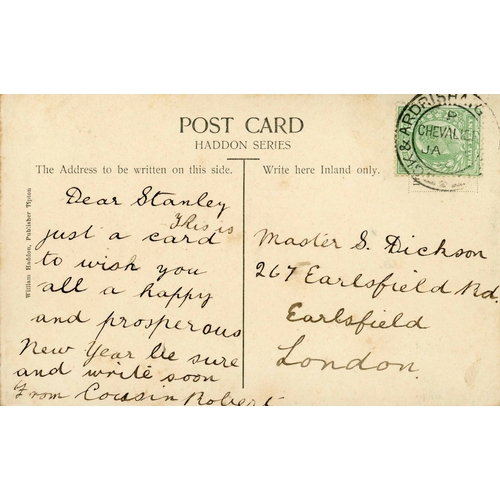 POST CARD
HADDON SERIES
The Address to be written on this side.
Write here Inland only.
Dear Stanley
This is
just a card
to wish you
all a happy
and prosperous
New Year be sure
and write soon
From Cousin Robert
Master S. Dickson
267 Earlsfield Rd.
Earlsfield
London.
William Haddon, Publisher Tipton
& ARDRISHAIG
P
CHEVALIER
JA